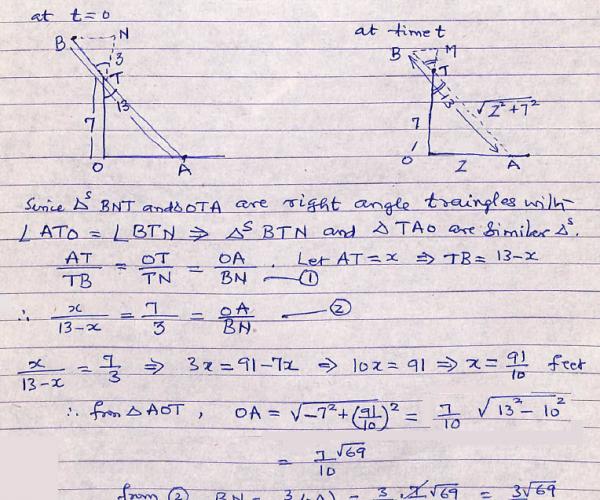 at t=0
at time t
B N
3
T
13
7
O A
B M
T
13
√(Z²+7²)
7
O Z A
Since Δˢ BNT and ΔOTA are right angle traingles with
∠ATO = ∠BTN ⇒ Δˢ BTN and Δ TAO are Similar Δˢ.
AT/TB = OT/TN = OA/BN —① . Let AT = x ⇒ TB = 13-x
∴ x/(13-x) = 7/3 = OA/BN —②
x/(13-x) = 7/3 ⇒ 3x = 91-7x ⇒ 10x = 91 ⇒ x = 91/10 feet
∴ from Δ AOT, OA = √(-7²+(91/10)²) = 7/10 √(13²-10²)
= 7√69/10
from ② BN = 3/7 √69 = 3√69